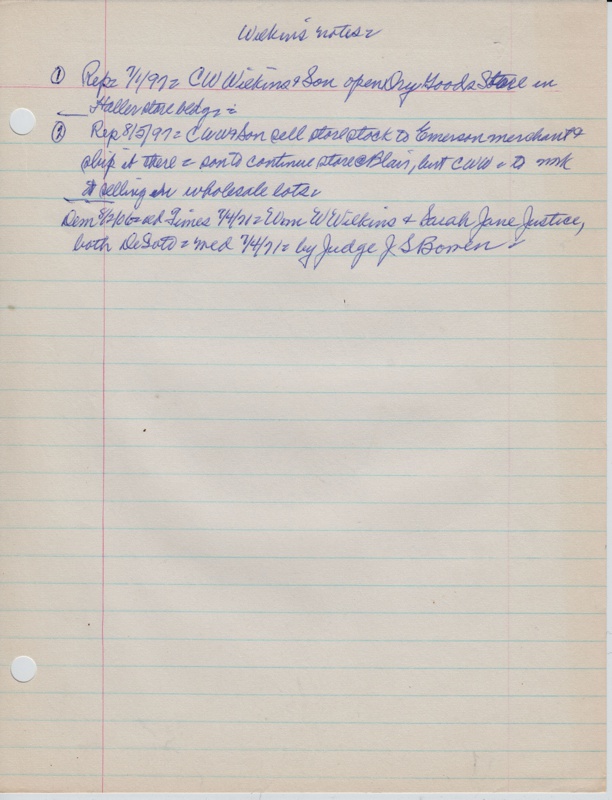 Wilkins notes =
① Rep = 7/1/97 = C W Wilkins & Son open Dry Goods Store in
Haller store bldg =
② Rep 8/5/97 = CWW & Son sell store stock to Emerson merchant &
ship it there = son to continue store @ Blair, but CWW = to
selling in wholesale lots =
Dem Times 7/4/71 = Wm W Wilkins & Sarah Jane Justice,
both DeSoto = med 7/4/71 = by Judge J S Bowen =